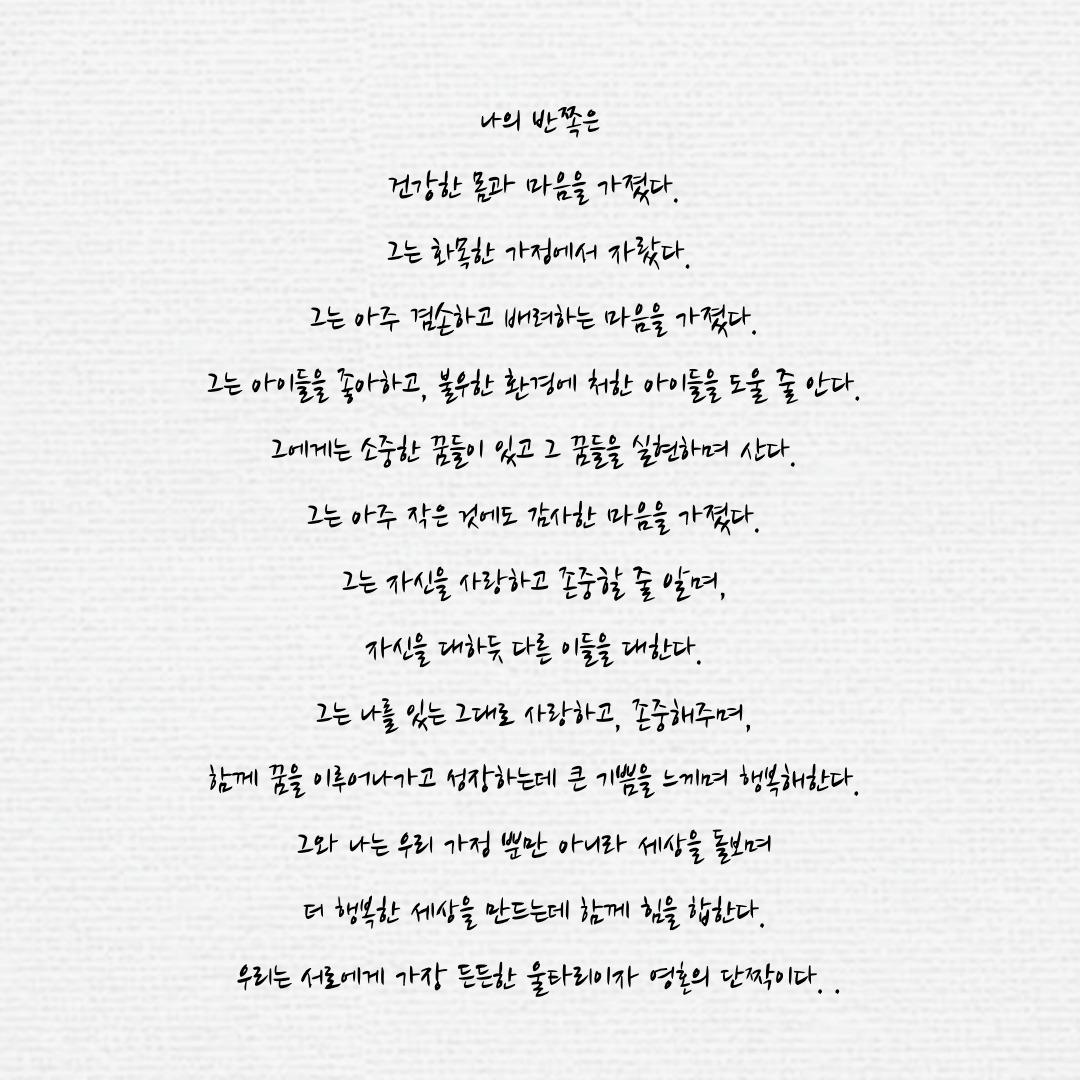 나의 반쪽은
건강한 몸과 마음을 가졌다.
그는 화목한 가정에서 자랐다.
그는 아주 겸손하고 배려하는 마음을 가졌다.
그는 아이들을 좋아하고, 불우한 환경에 처한 아이들을 도울 줄 안다.
그에게는 소중한 꿈들이 있고 그 꿈들을 실현하며 산다.
그는 아주 작은 것에도 감사한 마음을 가졌다.
그는 자신을 사랑하고 존중할 줄 알며,
자신을 대하듯 다른 이들을 대한다.
그는 나를 있는 그대로 사랑하고, 존중해주며,
함께 꿈을 이루어나가고 성장하는데 큰 기쁨을 느끼며 행복해한다.
그와 나는 우리 가정 뿐만 아니라 세상을 돌보며
더 행복한 세상을 만드는데 함께 힘을 합한다.
우리는 서로에게 가장 든든한 울타리이자 영혼의 단짝이다. .